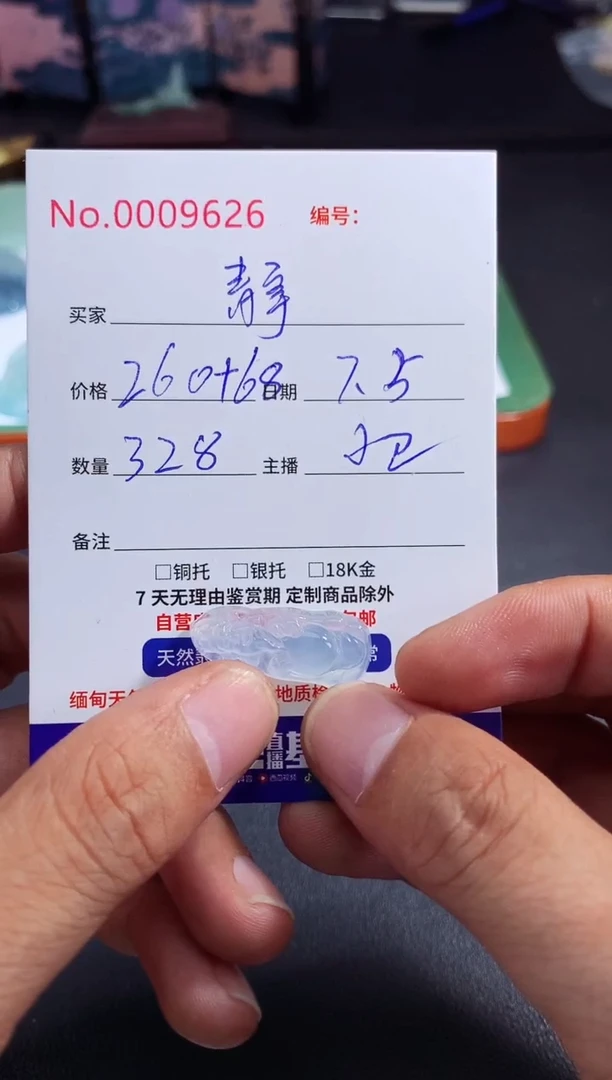 No.0009626 编号：
买家 静
价格 260+68 日期 7.5
数量 328 主播
备注
□铜托 □银托 □18K金
7天无理由鉴赏期 定制商品除外
自营
天然 常
缅甸天 地质检
播基
西瓜视频